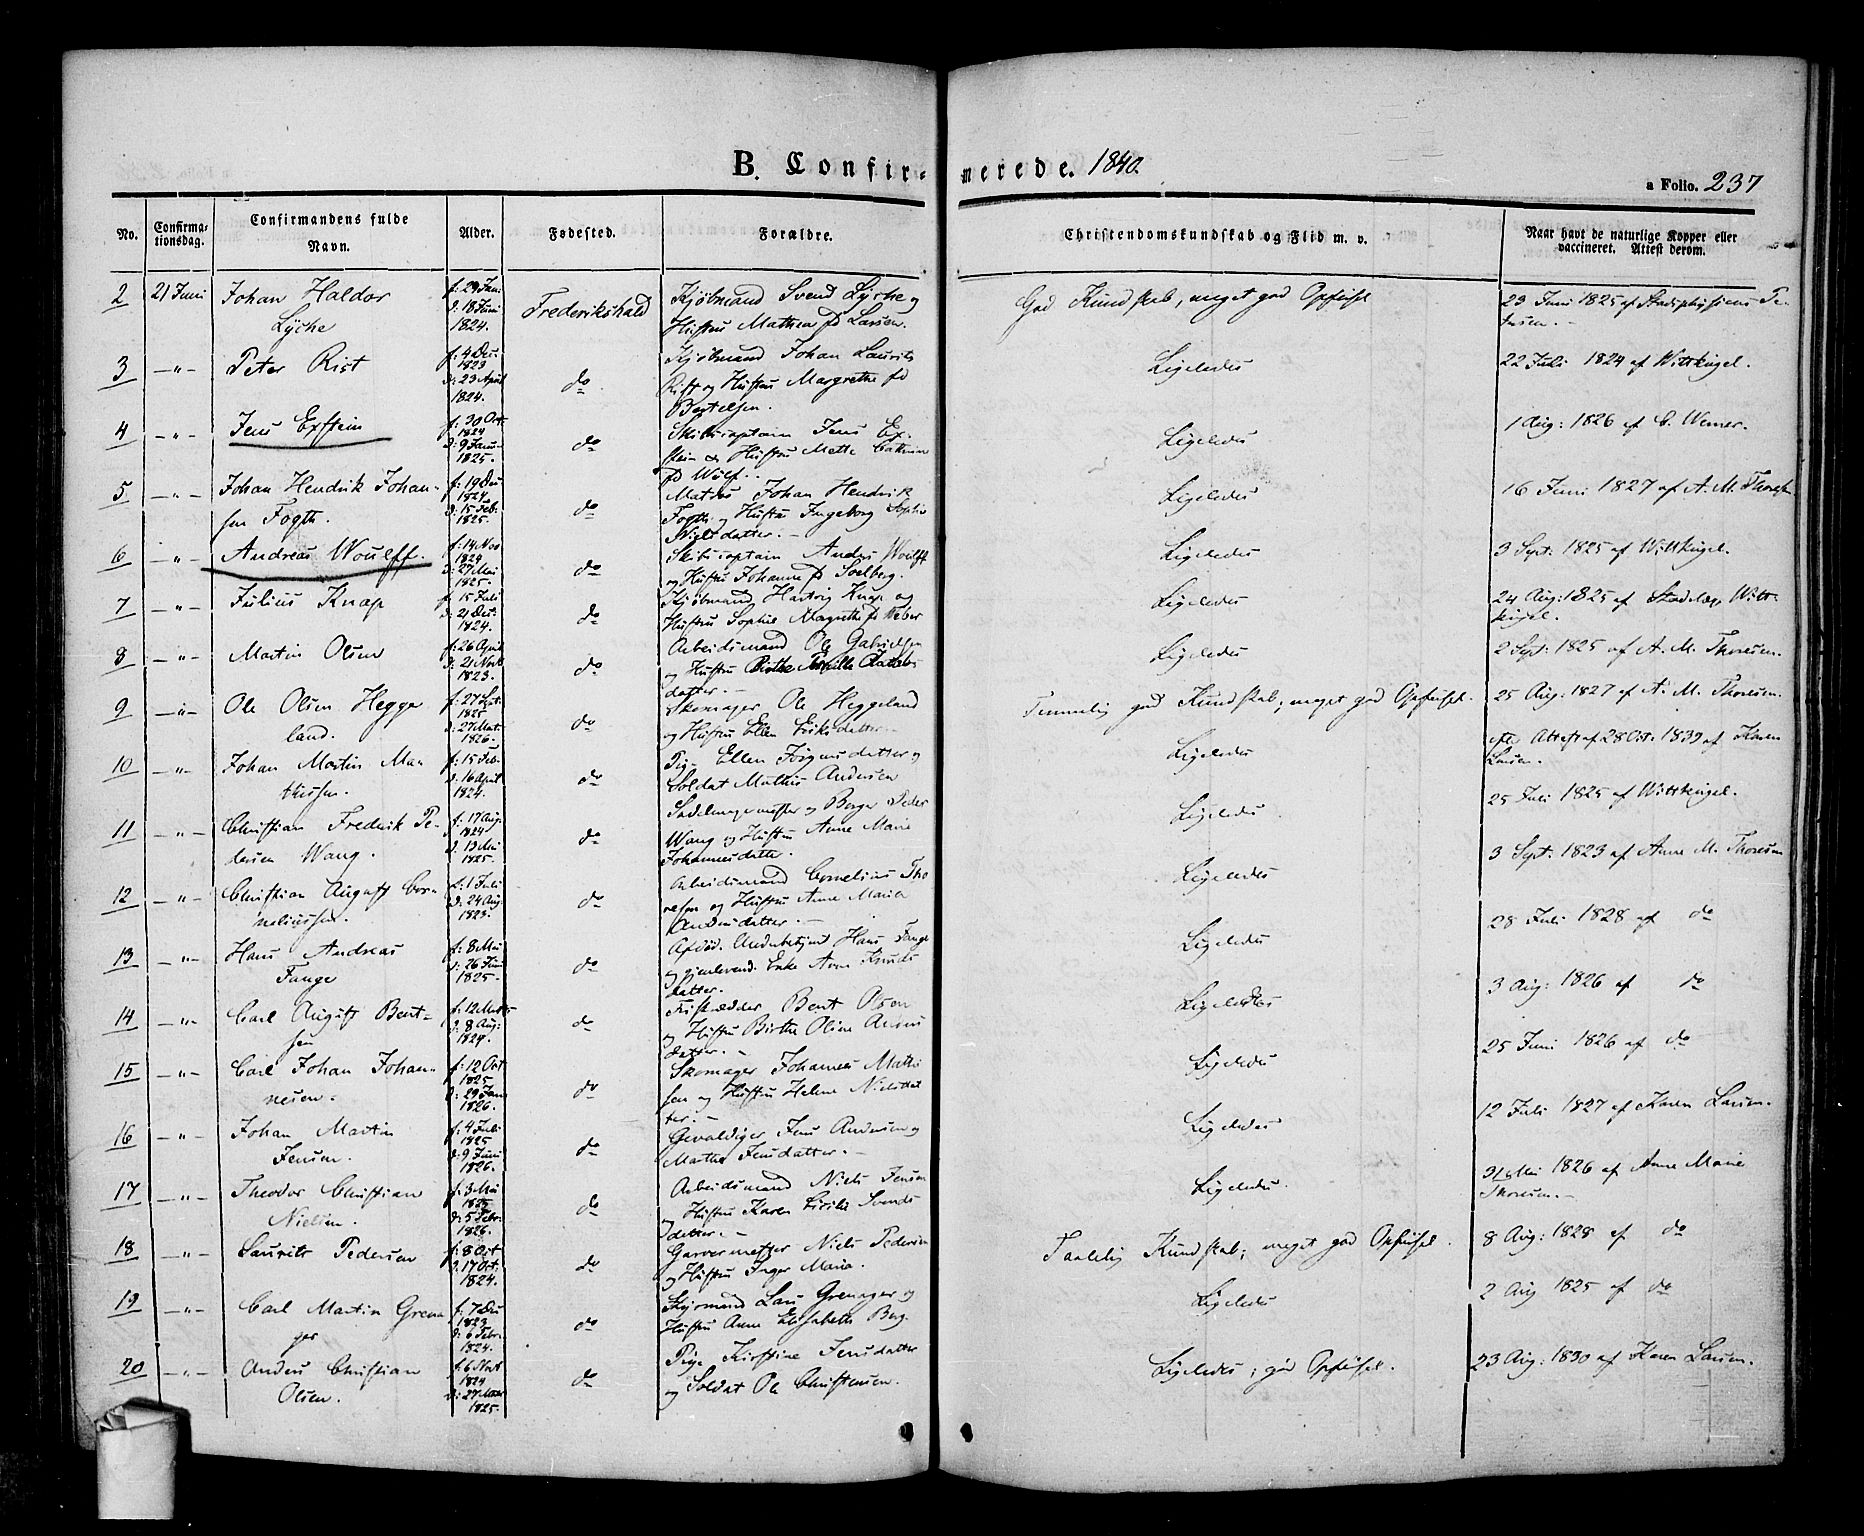 B. Confirmerede. 1840.
a Folio. 237
No. Confirmationsdag. Confirmandens fulde Navn. Alder. Fødested. Forældre. Christendomskundskab og Flid m. v. Naar havt de naturlige Kopper eller vaccineret. Attest derom.
2 21 Juni Johan Haldor Lyche f: 29 Jani d: 18 Juni 1824. Frederikshald Kjøbmand Svend Lyche og Hustru Mathea fd Larsen. God Kundskab, meget god Opførsel 23 Juni 1825 af Stadsphysicus Petersen.-
3 -"- Peter Rist f: 4 Dec. 1823 d: 23 April 1824. do. Kjøbmand Johan Laurits Rist og Hustru Margrethe fd Bertelsen. Ligeledes 22 Juli 1824 af Wittkugel.
4 -"- Jens Exstein f: 30 Oct. 1824 d: 9 Janu. 1825. do Skibscaptain Jens Exstein og Hustru Mette Cathrine fd Wulf. Ligeledes 1 Aug: 1826 af C. Werner.
5 -"- Johan Hendrik Johansen Fogth. f: 19 Dec 1824 d: 15 Feb. 1825. do Matros Johan Hendrik Fogth og Hustru Ingeborg Sophie Nielsdatter.- Ligeledes 16 Juni 1827 af A. M. Thoresen
6 -"- Andreas Woulff. f: 14 Nov 1824 d: 27 Mai 1825. do Skibscaptain Anders Woulff og Hustru Johanne fd Soelberg. Ligeledes 3 Sept: 1825 af Wittkugel.
7 -"- Julius Knap f: 15 Juli d: 21 Dec. 1824. do Kjøbmand Hartvig Knap og Hustru Sophie Magrethe fd Weber Ligeledes 24 Aug: 1825 af Stadslæge Wittkugel.
8 -"- Martin Olsen f: 26 April d: 21 Novb 1823. do Arbeidsmand Ole Gabrielsen og Hustru Birthe Pernille datter.- Ligeledes 2 Sept: 1825 af A. M. Thoresen.
9 -"- Ole Olsen Heggeland. f: 27 Sept. 1825 d: 27 Mat. 1826. do Skomager Ole Heggeland og Hustru Ellen Eriksdatter.- Temmelig god Kundskab, meget god Opførsel. 25 Aug: 1827 af A. M. Thoresen.
10 -"- Johan Martin Mathissen. f: 15 Feb. d. 16 April 1824. do Pige Ellen Jørgensdatter og Soldat Mathis Andersen Ligeledes efter Attest af 28 Oct. 1839 af Karen Larsen.
11 -"- Christian Fredrik Pedersen Wang. f: 17 Aug. 1824 d. 13 Mai 1825. do Sadelmagermester og Borger Peder Wang og Hustru Anne Marie Johannesdatter. Ligeledes 25 Juli 1825 af Wittkugel.
12 -"- Christian August Corneliussen. f: 1 Juli d: 24 Aug. 1823. do Arbeidsmand Cornelius Thoresen og Hustru Anne Maria Andersdatter.- Ligeledes 3 Sept: 1823 af Anne M. Thoresen
13 -"- Hans Andreas Tange f: 8 Mai d: 26 Juni 1825. do Afdød. Hans Tange og gjenlevende Enke Anne Knudsdatter. Ligeledes 28 Juli 1828 af do
14 -"- Carl August Bentsen f: 12 Marts d: 8 Aug: 1824. do Bent Olsen og Hustru Birthe Oline datter.- Ligeledes 3 Aug: 1826 af do
15 -"- Carl Johan Johannesen. f: 12 Oct 1825 d: 29 Janu 1826. do Skomager Johannes Mathisen og Hustru Helene Nielsdatter.- Ligeledes 25 Juni 1826 af do
16 -"- Johan Martin Jensen. f: 4 Juli 1825 d: 9 Juni 1826. do Gevaldiger Jens Andersen og Mathe Jensdatter.- Ligeledes 12 Juli 1827 af Karen Larsen.
17 -"- Theodor Christian Nielsen. f: 3 Mai 1825 d: 5 Febr. 1826. do Arbeidsmand Niels Jensen og Hustru Karen Sirilie Svendsdatter.- Ligeledes. 31 Mai 1826 af Anne Marie Thoresen.-
18 -"- Laurits Pedersen f: 8 Oct d. 17 Oct. 1824. do Garvermester Niels Pedersen og Hustru Inger Maria. Taalelig Kundskab; meget god Opførsel. 8 Aug: 1828 af do
19 -"- Carl Martin Grenager f: 7 Dec 1823 d: 6 Febr. 1824. do Styrmand Lars Grenager og Hustru Anne Elisabeth Berg. Ligeledes 2 Aug 1825 af do
20 -"- Anders Christian Olsen. f. 6 Novt 1824 d: 27 Marts 1825. do Pige Kirstine Jensdatter og Soldat Ole Christensen. Ligeledes; god Opførsel. 23 Aug: 1830 af Karen Larsen.